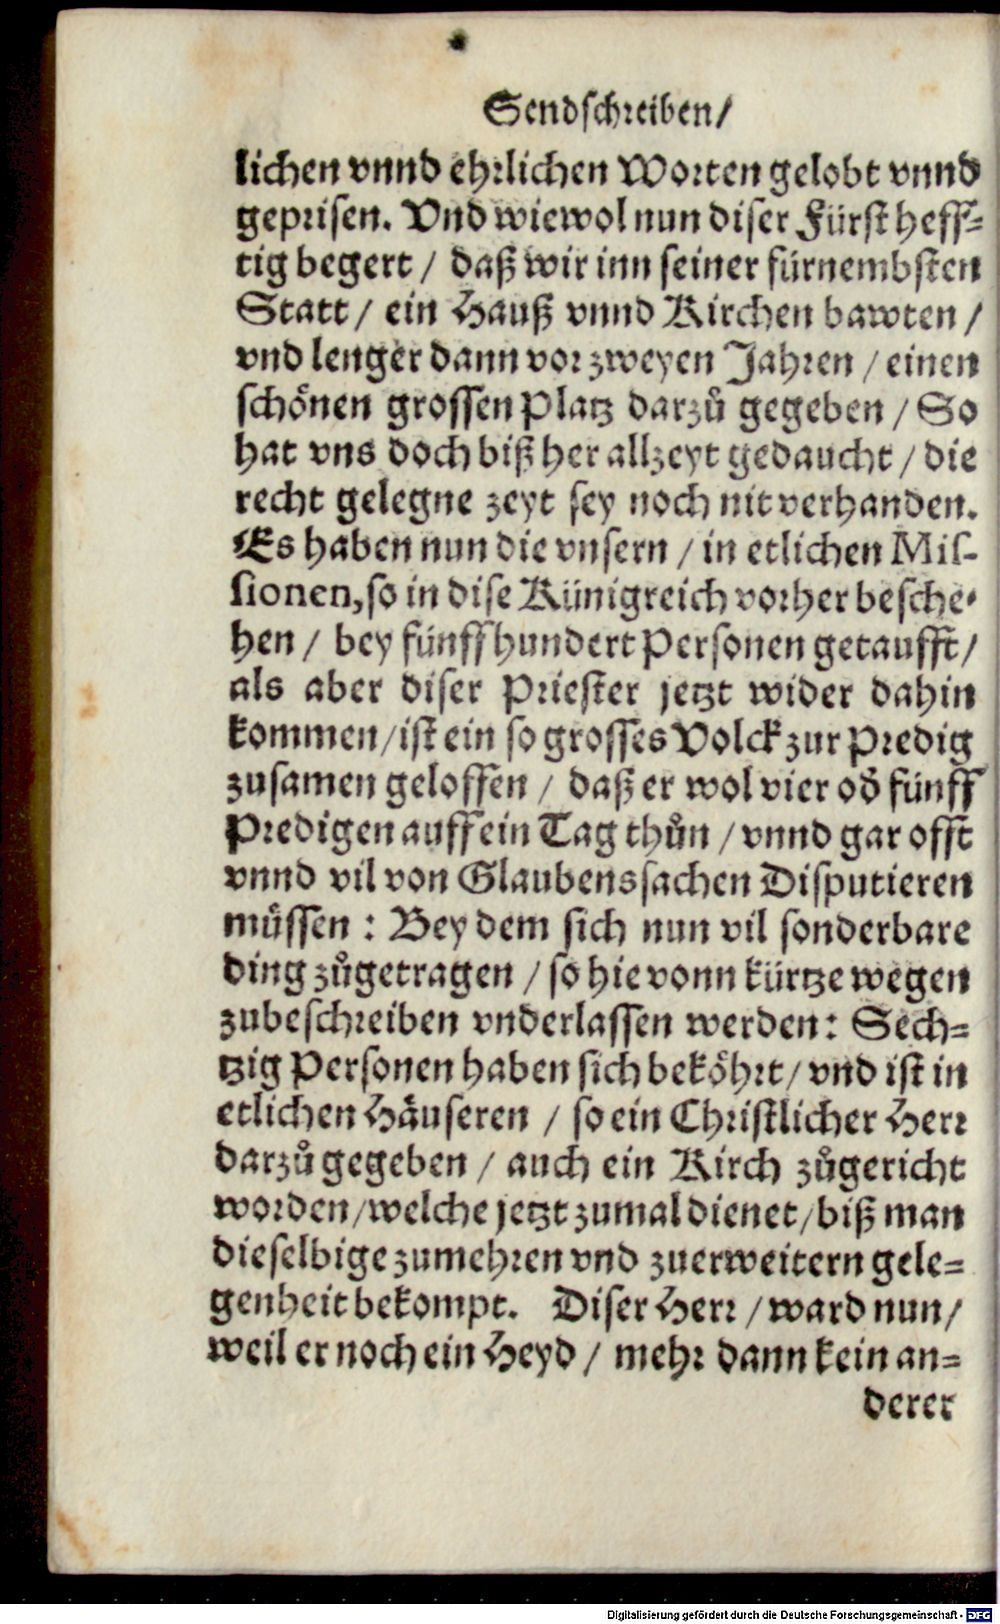 Sendschreiben/
lichen vnnd ehrlichen Worten gelobt vnnd
geprisen. Vnd wiewol nun diser Fürst heff-
tig begert / daß wir inn seiner fürnembsten
Statt / ein Hauß vnnd Kirchen bawten /
vnd lenger dann vor zweyen Jahren / einen
schönen grossen Platz darzů gegeben / So
hat vns doch biß her allzeyt gedaucht / die
recht gelegne zeyt sey noch nit verhanden.
Es haben nun die vnsern / in etlichen Mis-
sionen, so in dise Künigreich vorher besche-
hen / bey fünffhundert Personen getaufft/
als aber diser Priester jetzt wider dahin
kommen/ist ein so grosses Volck zur Predig
zusamen geloffen / daß er wol vier oď fünff
Predigen auff ein Tag thůn / vnnd gar offt
vnnd vil von Glaubenssachen Disputieren
müssen : Bey dem sich nun vil sonderbare
ding zůgetragen / so hie vonn kürtze wegen
zubeschreiben vnderlassen werden: Sech-
tzig Personen haben sich beköhrt/ vnd ist in
etlichen Häuseren / so ein Christlicher Herr
darzů gegeben / auch ein Kirch zůgericht
worden/welche jetzt zumal dienet/biß man
dieselbige zumehren vnd zuerweitern gele-
genheit bekompt. Diser Herr / ward nun/
weil er noch ein Heyd / mehr dann kein an-
derer
Digitalisierung gefördert durch die Deutsche Forschungsgemeinschaft - DFG